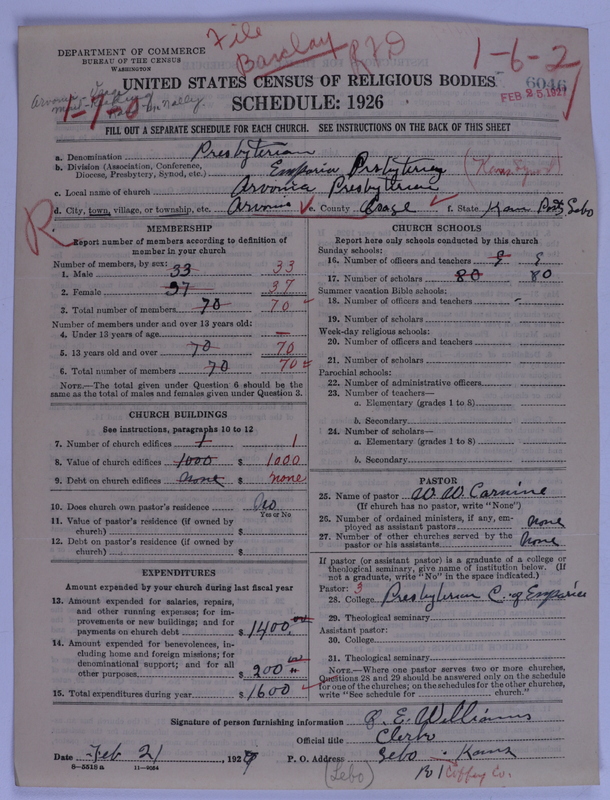 File
Barclay RFD
1-6-2
DEPARTMENT OF COMMERCE
BUREAU OF THE CENSUS
WASHINGTON
UNITED STATES CENSUS OF RELIGIOUS BODIES
6046
FEB 25 1927
1-7-0
SCHEDULE: 1926
FILL OUT A SEPARATE SCHEDULE FOR EACH CHURCH. SEE INSTRUCTIONS ON THE BACK OF THIS SHEET
a. Denomination Presbyterian
b. Division (Association, Conference, Diocese, Presbytery, Synod, etc.) Emporia Presbytery (Kans Synod)
c. Local name of church Arvonia Presbyterian
d. City, town, village, or township, etc. Arvonia e. County Osage f. State Kans Lebo
R
MEMBERSHIP
Report number of members according to definition of member in your church
Number of members, by sex:
1. Male 33 33
2. Female 37 37
3. Total number of members 70 70
Number of members under and over 13 years old:
4. Under 13 years of age —
5. 13 years old and over 70 70
6. Total number of members 70 70
NOTE.—The total given under Question 6 should be the same as the total of males and females given under Question 3.
CHURCH BUILDINGS
See instructions, paragraphs 10 to 12
7. Number of church edifices 1 1
8. Value of church edifices 1000 $ 1000
9. Debt on church edifices none $ none
10. Does church own pastor's residence No
Yes or No
11. Value of pastor's residence (if owned by church) $
12. Debt on pastor's residence (if owned by church) $
EXPENDITURES
Amount expended by your church during last fiscal year
13. Amount expended for salaries, repairs, and other running expenses; for improvements or new buildings; and for payments on church debt $ 1400
14. Amount expended for benevolences, including home and foreign missions; for denominational support; and for all other purposes $ 200
15. Total expenditures during year $ 1600
CHURCH SCHOOLS
Report here only schools conducted by this church
Sunday schools:
16. Number of officers and teachers 9 9
17. Number of scholars 80 80
Summer vacation Bible schools:
18. Number of officers and teachers
19. Number of scholars
Week-day religious schools:
20. Number of officers and teachers
21. Number of scholars
Parochial schools:
22. Number of administrative officers
23. Number of teachers—
a. Elementary (grades 1 to 8)
b. Secondary
24. Number of scholars—
a. Elementary (grades 1 to 8)
b. Secondary
PASTOR
25. Name of pastor W. W. Carnine
(If church has no pastor, write "None")
26. Number of ordained ministers, if any, employed as assistant pastors none
27. Number of other churches served by the pastor or his assistants none
If pastor (or assistant pastor) is a graduate of a college or theological seminary, give name of institution below. (If not a graduate, write "No" in the space indicated.)
Pastor: 3
28. College Presbyterian C. of Emporia
29. Theological seminary
Assistant pastor:
30. College
31. Theological seminary
NOTE.—Where one pastor serves two or more churches, Questions 28 and 29 should be answered only on the schedule for one of the churches; on the schedules for the other churches, write "See schedule for church."
Signature of person furnishing information J. E. Williams
Official title Clerk
Date Feb 21, 1927 P. O. Address Lebo Kans
8-5518 a 11-9054
(Lebo) R 1 Coffey Co.